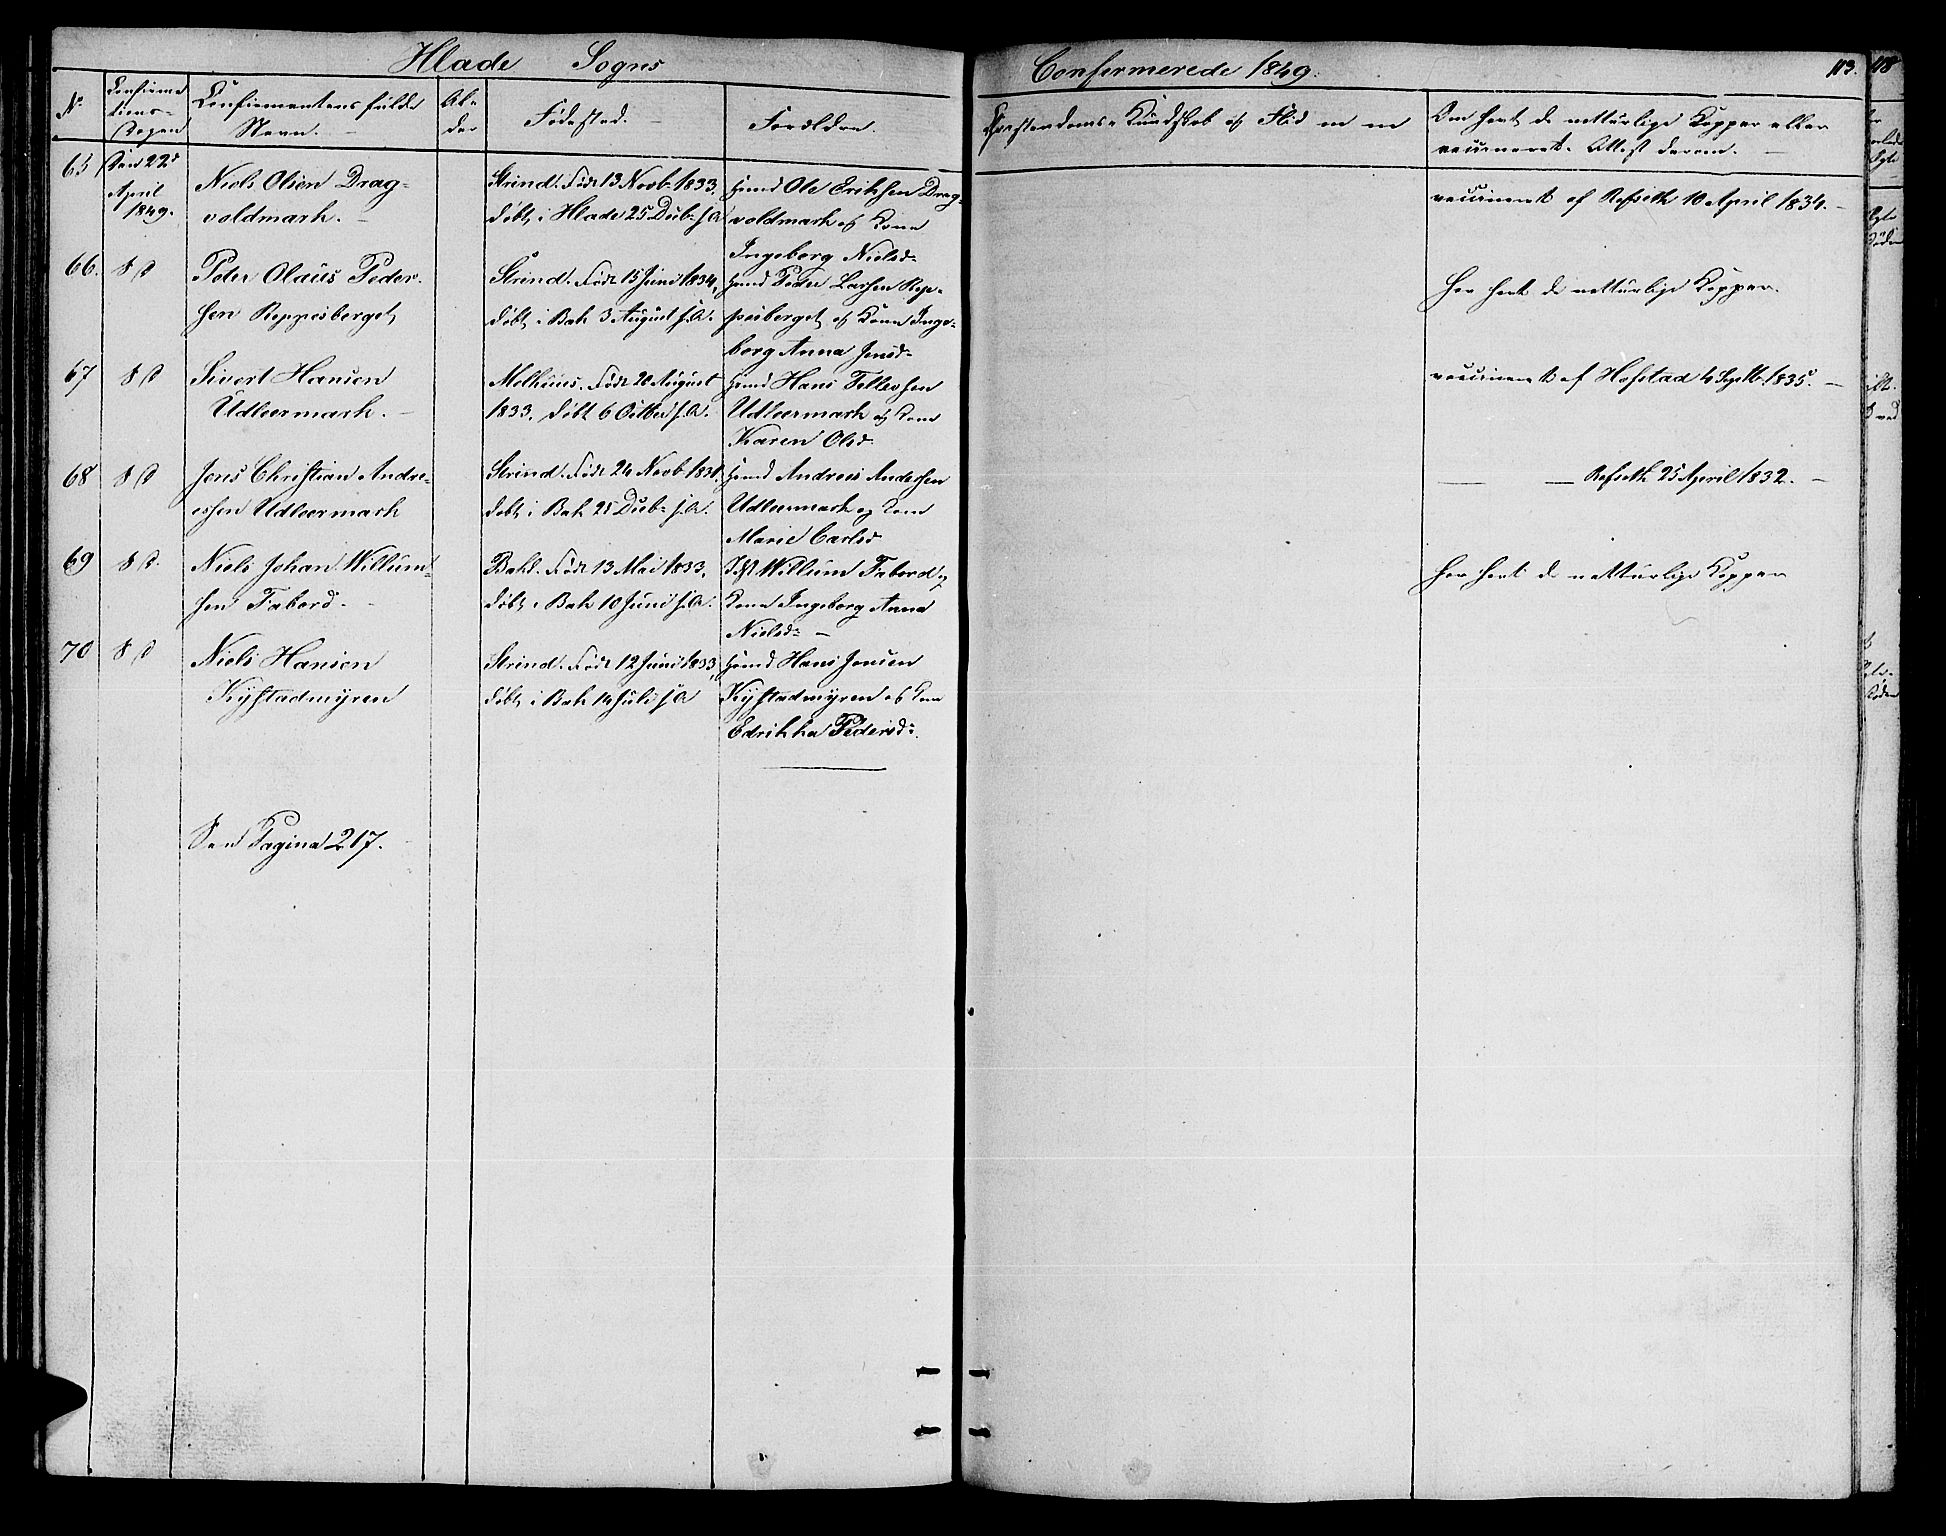 Hlade Sogns
Confirmerede 1849.
113.
118
No
Confirma-
tions-
Dagen
Confirmantens fulde
Navn.
Al-
der
Fødested.
Forældre.
Christendoms-Kundskab og Flid
Om havt de naturlige Kopper eller
vaccineret. Attest derom.
65
Den 22d
April
1849.
Niels Olsen Drag-
voldmark.
Strind. Født 13 Novb. 1833.
døbt i Hlade 25 Decb. s.A.
Huusmd Ole Eriksen Drag-
voldmark og Kone
Ingeborg Nielsd.
vaccineret af Refseth 10 April 1834.
66.
Peter Olaus Peder-
sen Reppesberget
Strind. Født 15 Juni 1834,
døbt i Bak 3 August s.A.
Huusmd Peder Larsen Rep-
pesberget og Kone Inge-
borg Anna Jensd.
har havt de naturlige Kopper.
67
Sivert Hansen
Udleermark.
Melhuus. Født 20 August
1833, døbt 6 Octbr s.A.
Huusmd Hans Tellefsen
Udleermark og Kone
Karen Olsd.
vaccineret af Hofstad 4 Septb. 1835.
68
Jens Christian Andre-
essen Udleermark
Strind. Født 24 Novb. 1831.
døbt i Bak 25 Decb. s.A.
Huusmd Andreas Andersen
Udleermark og Kone
Marie Carlsd
Refseth 25 April 1832.
69
Niels Johan Willum-
sen Fabord.
Bakl. Født 13 Mai 1833,
døbt i Bak 10 Juni s.A.
Willum Fabord og
Kone Ingeborg Anna
Nielsd.
har havt de naturlige Kopper
70
Niels Hansen
Kystadmyren
Strind. Født 12 Juni 1833,
døbt i Bak 14 Juli s.A
Huusmd Hans Jensen
Kystadmyren og Kone
Edrikka Pedersd.
See Pagina 217.